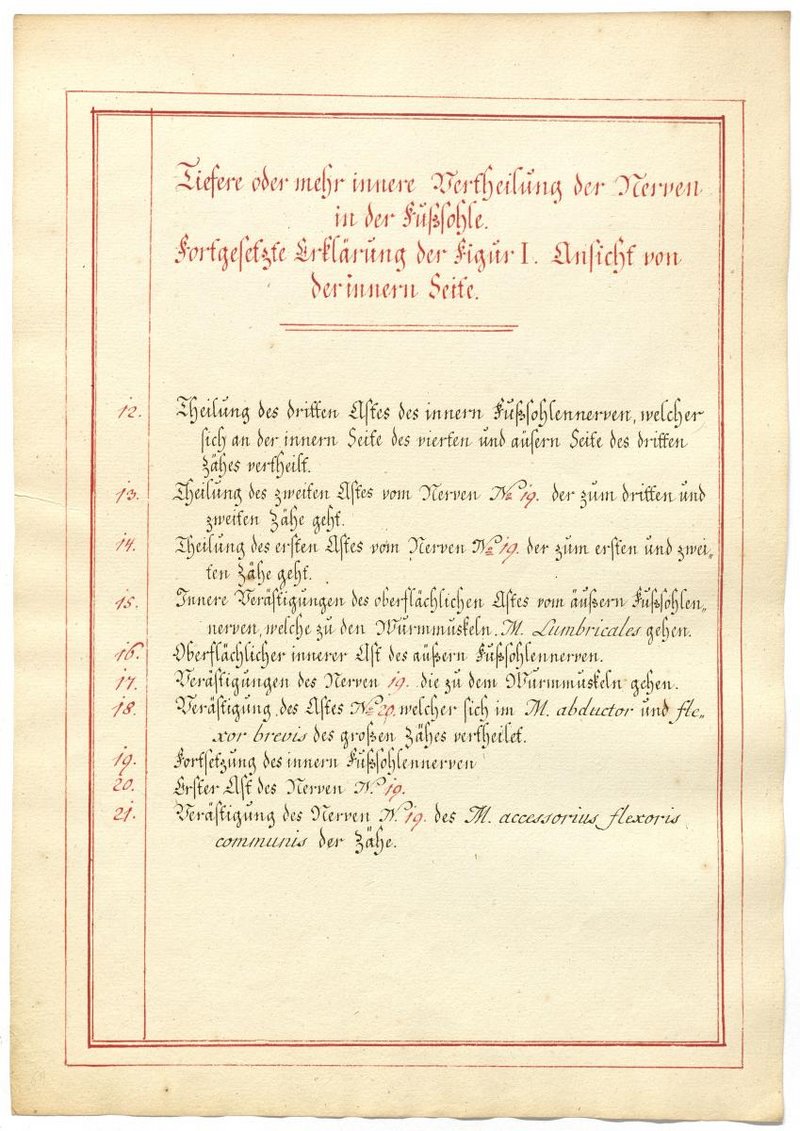 Tiefere oder mehr innere Vertheilung der Nerven
in der Fußsohle.
Fortgesetzte Erklärung der Figur I. Ansicht von
der innern Seite.
12. Theilung des dritten Astes des innern Fußsohlennerven, welcher
sich an der innern Seite des vierten und äusern Seite des dritten
Zähes vertheilt.
13. Theilung des zweiten Astes vom Nerven No 19. der zum dritten und
zweiten Zähe geht.
14. Theilung des ersten Astes vom Nerven No 19. der zum ersten und zwei„
ten Zähe geht.
15. Innere Verästigungen des oberflächlichen Astes vom äußern Fußsohlen„
nerven, welche zu den Wurmmuskeln M. Lumbricales gehen.
16. Oberflächlicher innerer Ast des äußern Fußsohlennerven.
17. Verästigungen des Nerven 19. die zu dem Wurmmuskeln gehen.
18. Verästigung des Astes No 20, welcher sich im M. abductor und fle„
xor brevis des großen Zähes vertheilet.
19. Fortsetzung des innern Fußsohlennerven
20. Erster Ast des Nerven No 19.
21. Verästigung des Nerven No 19. des M. accessorius flexoris
communis der Zähe.